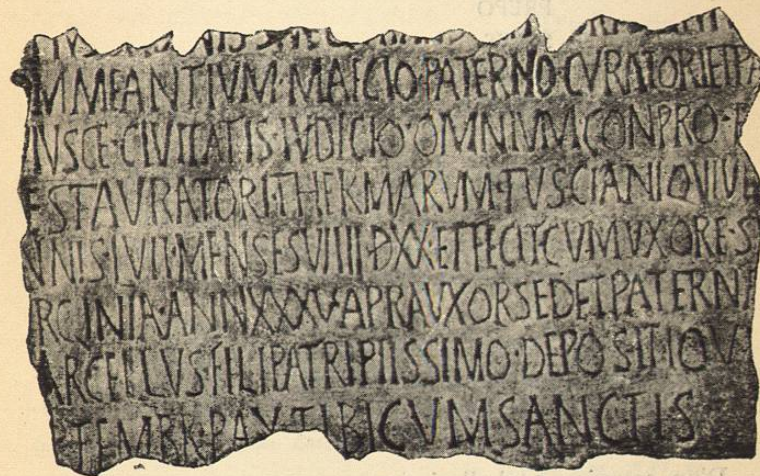 MMEANTIVM·MAECIO·PATERNO·CVRATORIETPA
IVSCE·CIVITATIS·IVDICIO·OMNIVM·CONPRO·
ESTAVRATORI·THERMARVM·TVSCIANIQVIVI
NNIS·LVII·MENSESVIIII·DXX·ETFECIT·CVMVXORE·S
RCINIA·ANNXXXV·APRAVXORSEDETPATERN
ARCELLVS·FILIPATRIPIISSIMO·DEPOSITIOV
TEMBR·PAX·TIBICVMSANCTIS